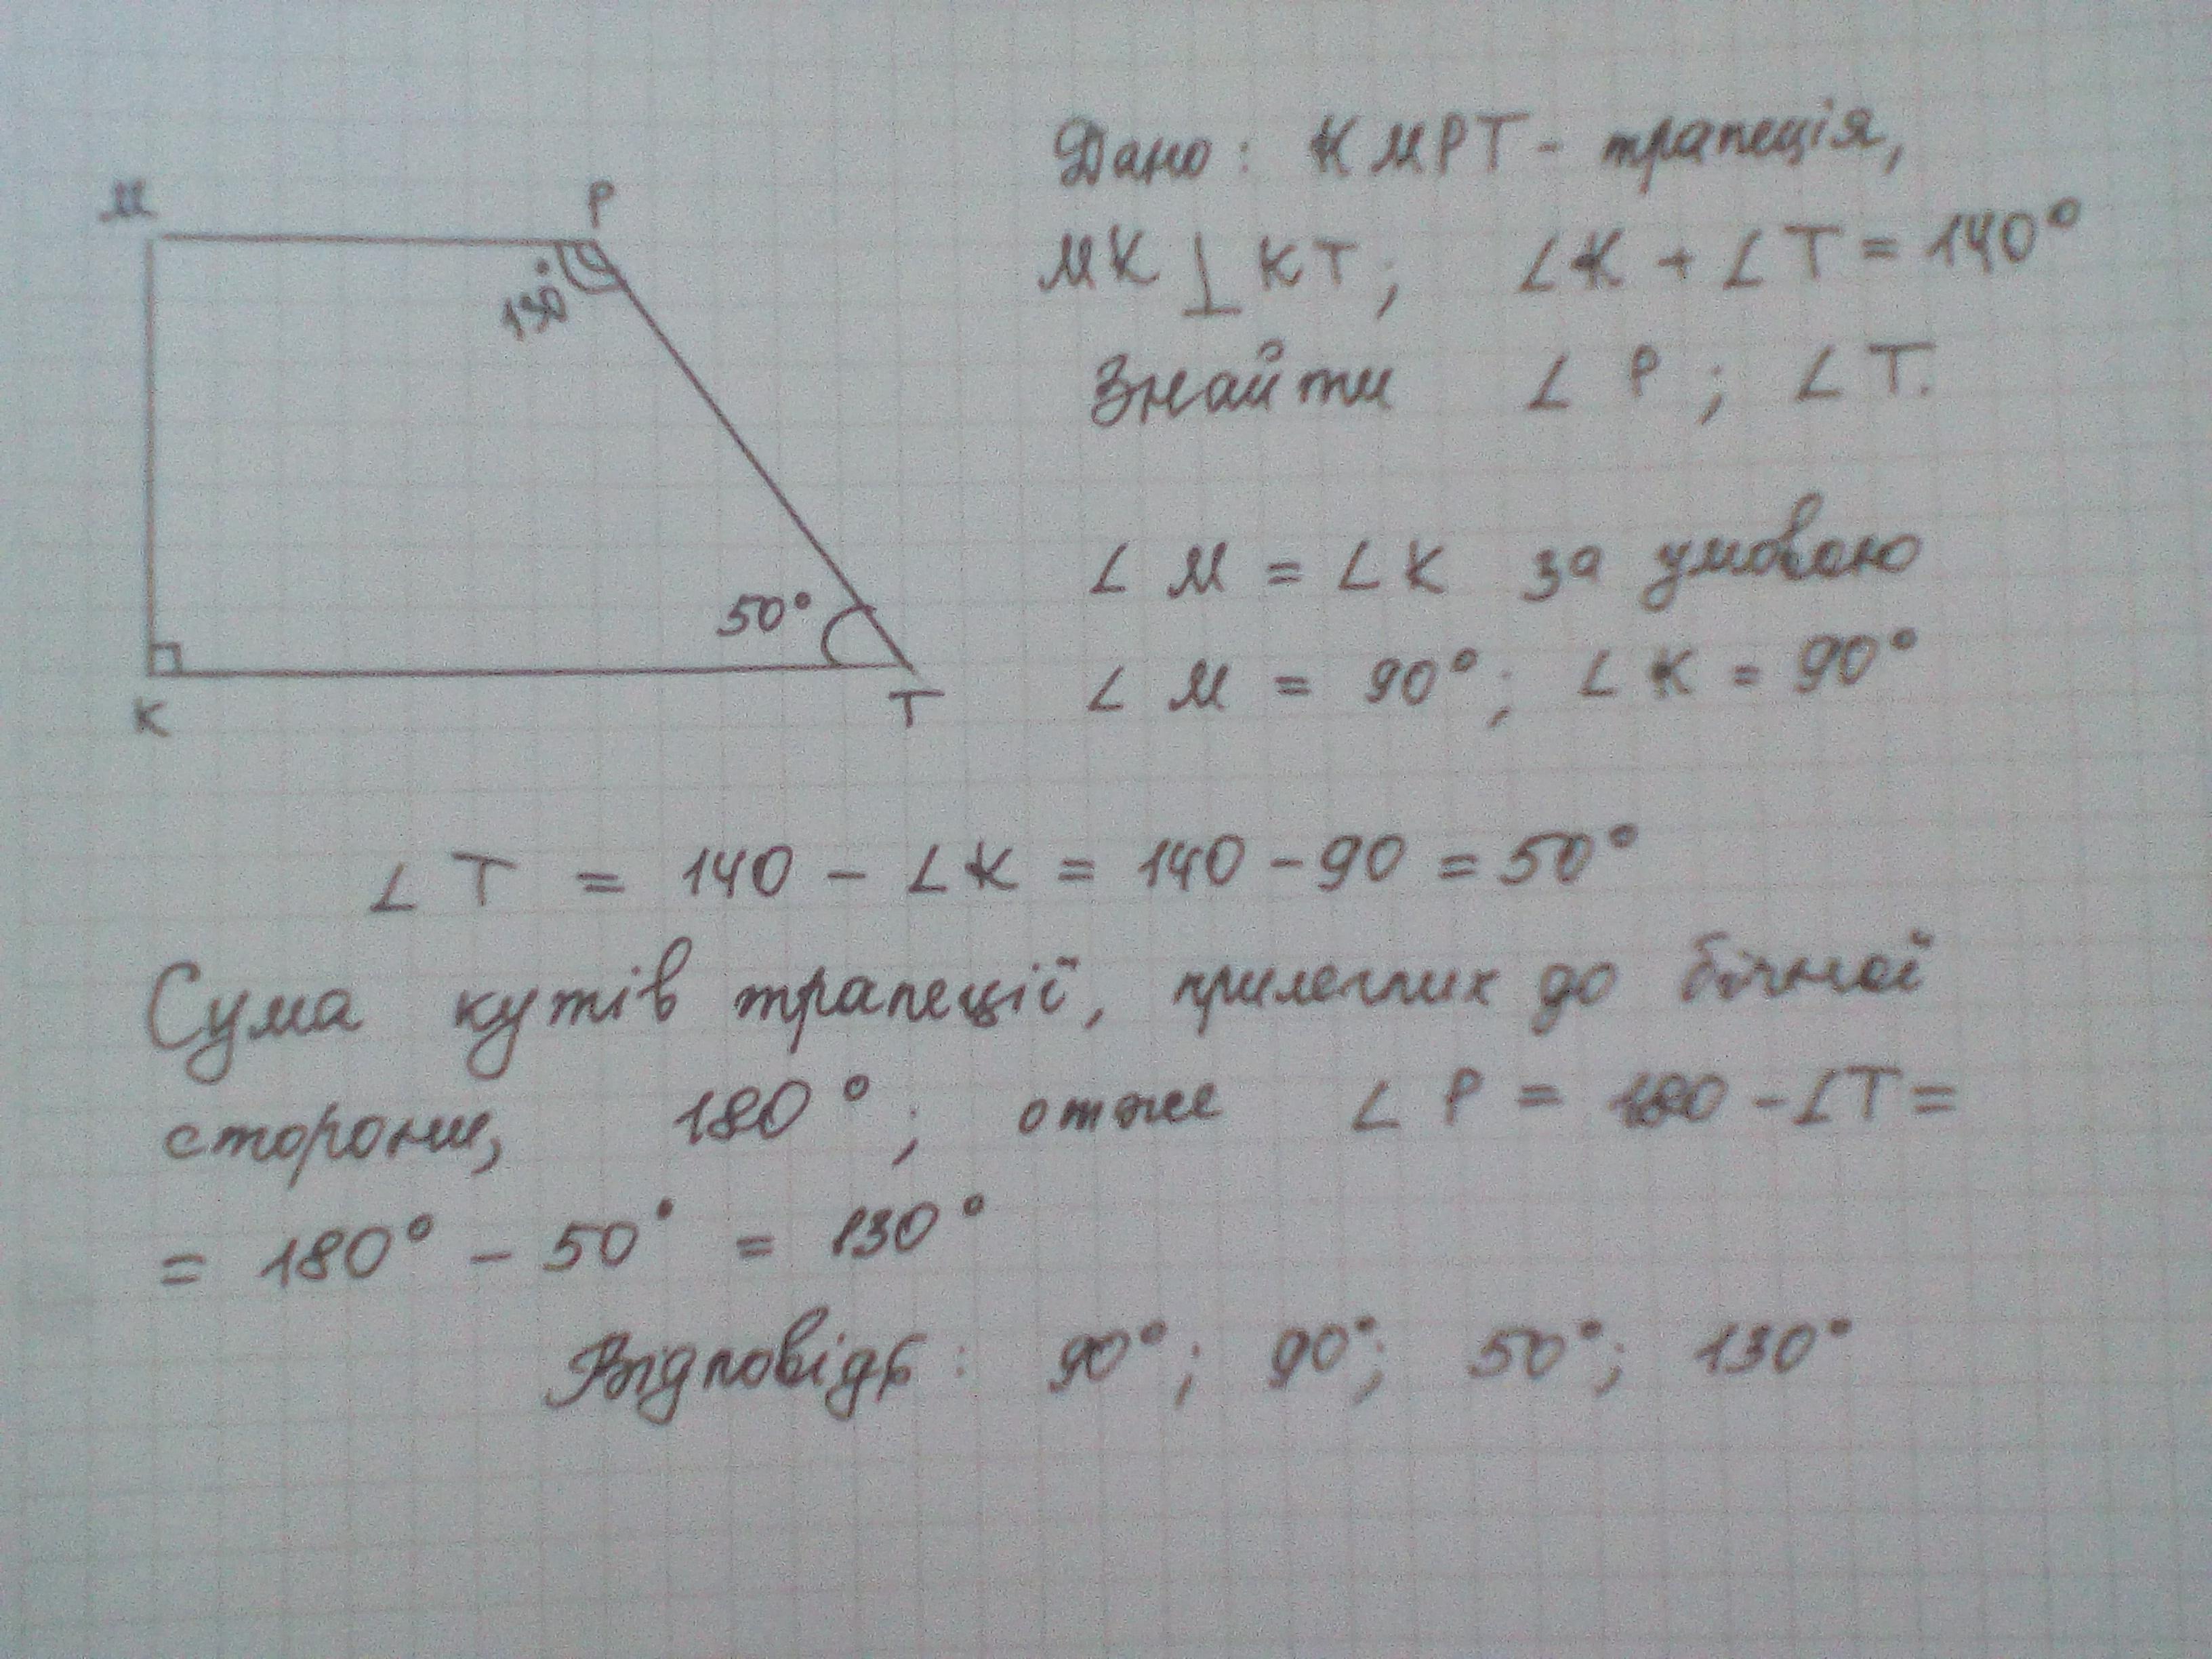 М
Р
130°
50°
К
Т
Дано: КМРТ - трапеція,
МК ⊥ КТ; ∠К + ∠Т = 140°
Знайти ∠ Р; ∠ Т.
∠ М = ∠ К за умовою
∠ М = 90°; ∠ К = 90°
∠ Т = 140 - ∠ К = 140 - 90 = 50°
Сума кутів трапеції, прилеглих до бічної
сторони, 180°; отже ∠ Р = 180 - ∠Т =
= 180° - 50° = 130°
Відповідь: 90°; 90°; 50°; 130°